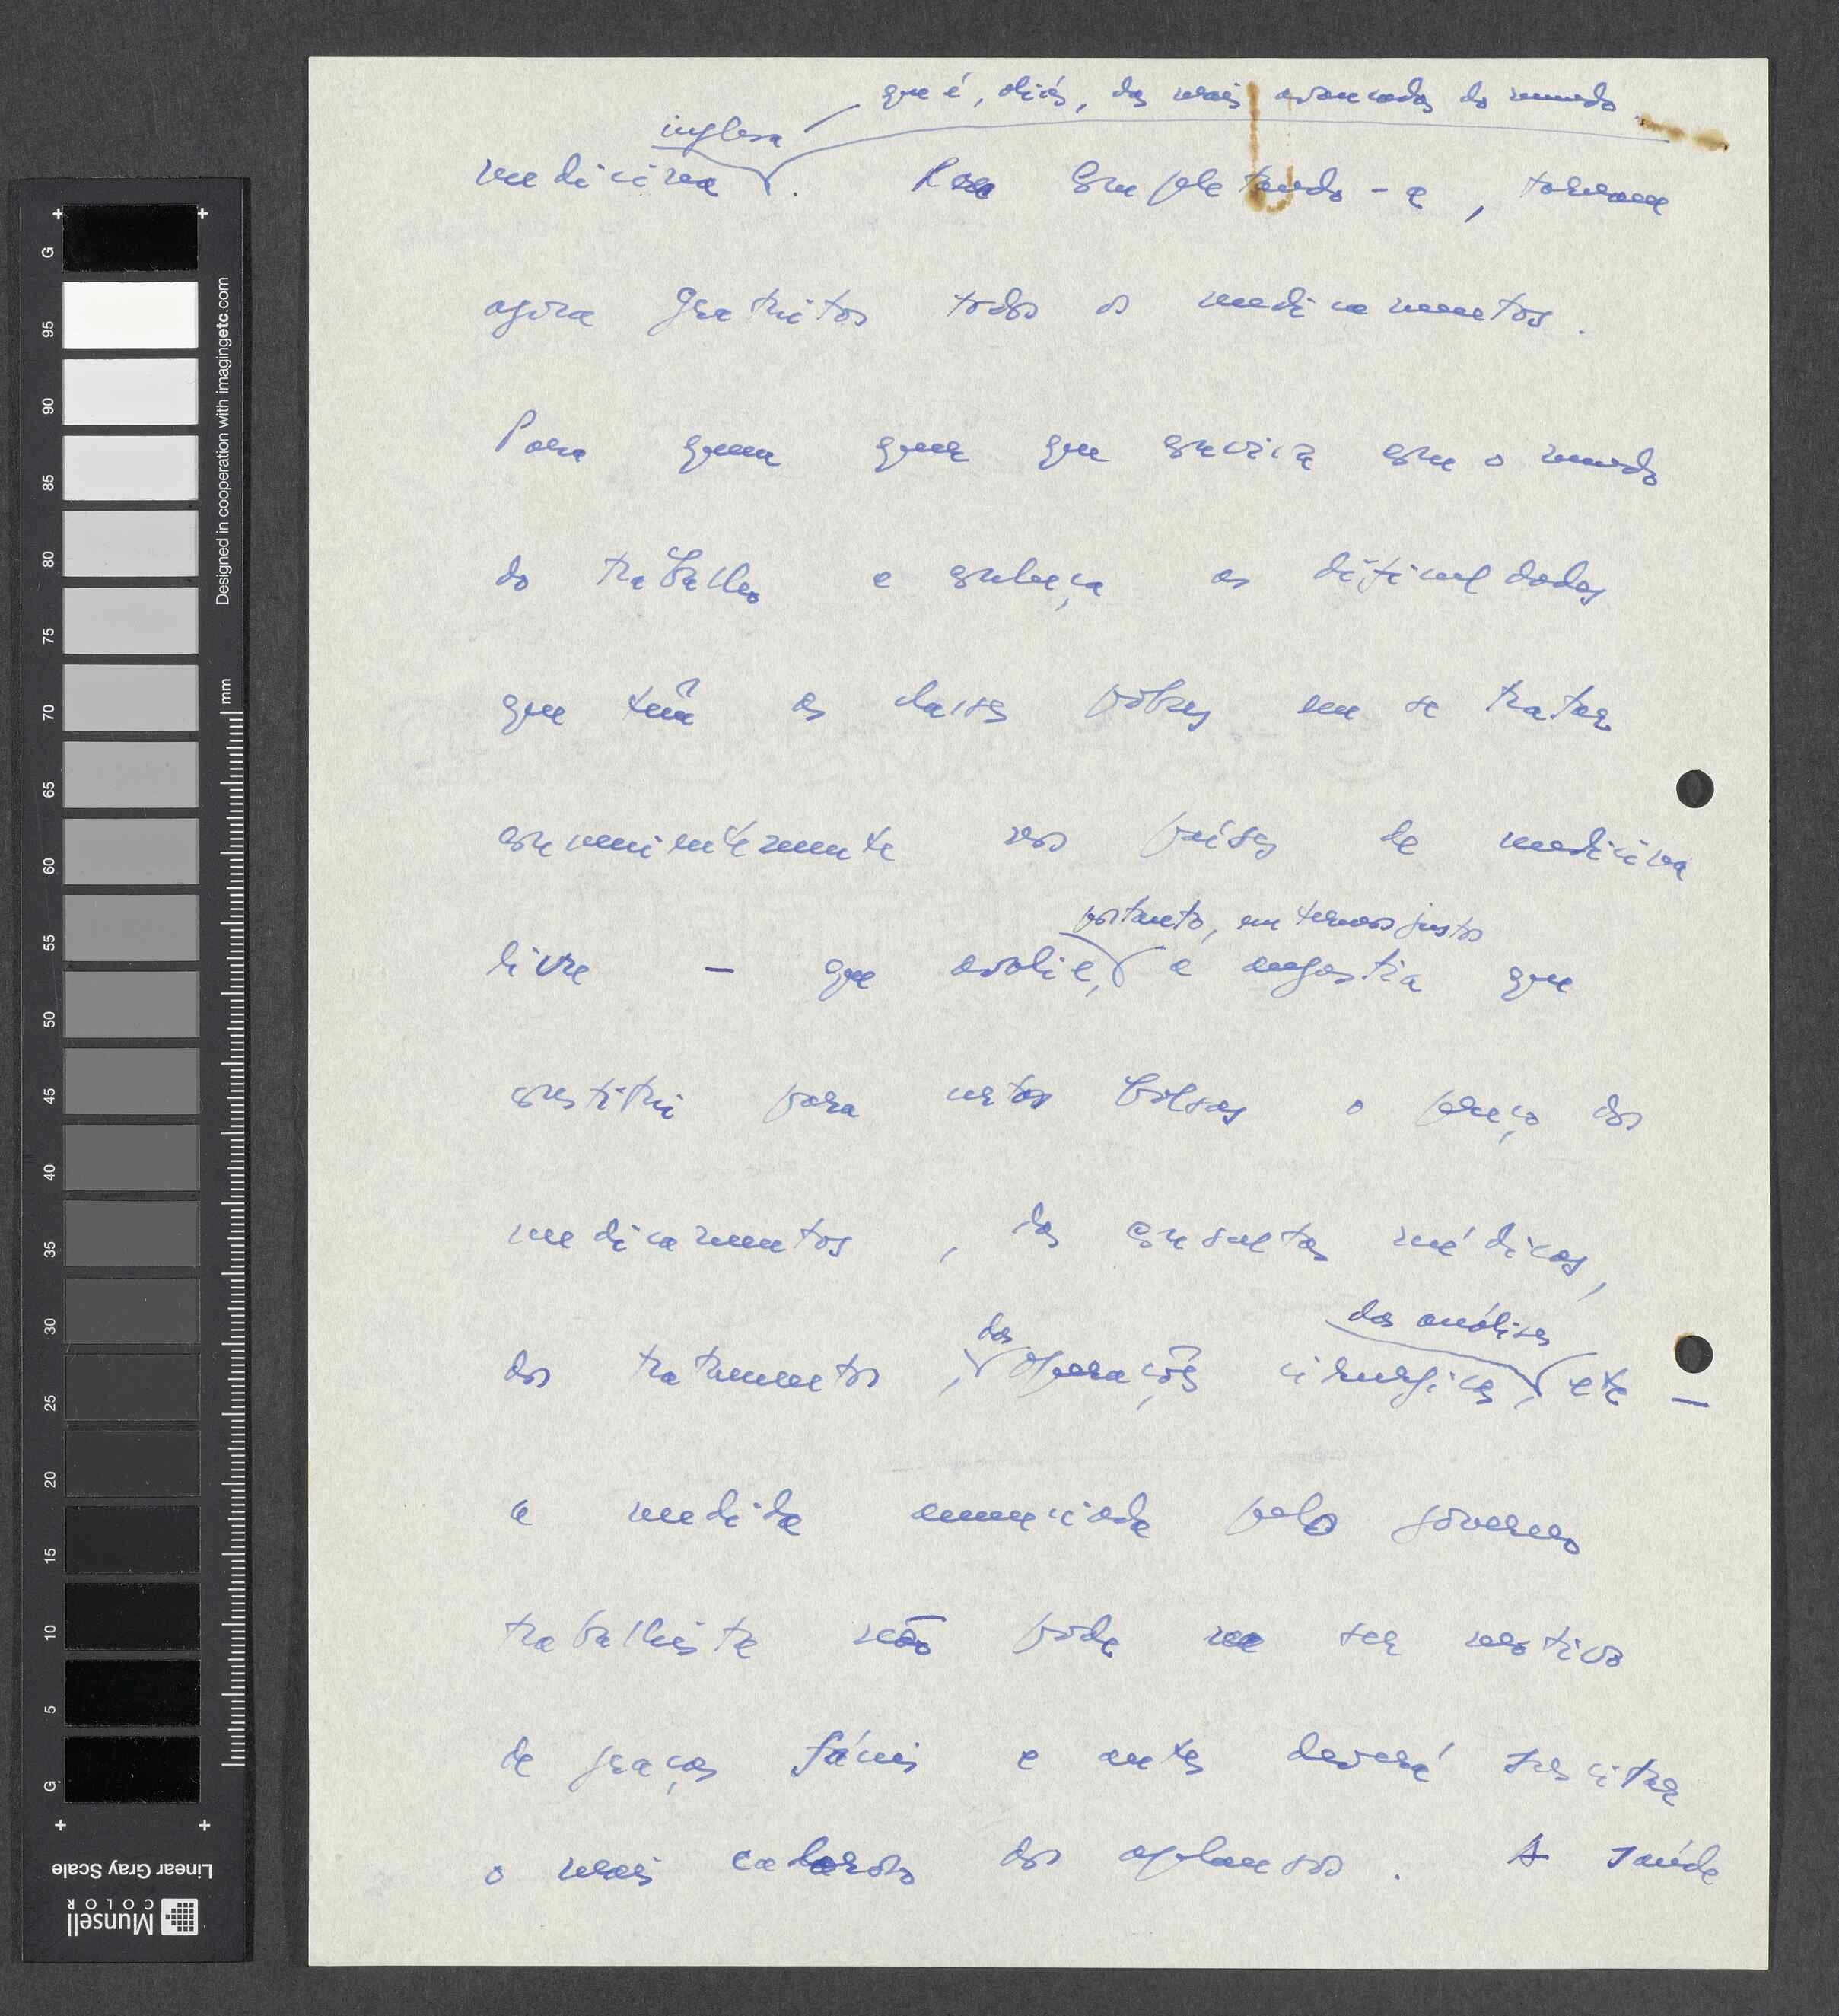 que é, aliás, das mais avançadas do mundo.
inglesa
medicina. Completando-a, tornam
agora gratuitos todos os medicamentos.
Para quem quer que conviva com o mundo
do trabalho e conheça as dificuldades
que têm as classes pobres em se tratar
convenientemente nos países de medicina
portanto, em termos justos
livre — que avalie, a angústia que
constitui para certas bolsas o preço dos
medicamentos, das consultas médicas,
das das análises
dos tratamentos, operações cirurgicas, etc —
a medida anunciada pelo govêrno
trabalhista não pode ser motivo
de graças fáceis e antes deverá suscitar
o mais caloroso dos aplausos. A saúde
G 95 90 85 80 75 70 65 60 55 50 45 40 35 30 25 20 15 10 5 G
mm
Designed in cooperation with imagingetc.com
Linear Gray Scale
Munsell
COLOR